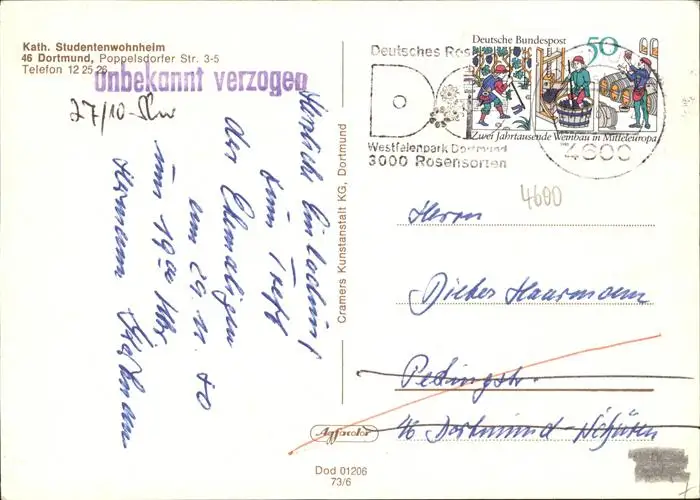 Kath. Studentenwohnheim
46 Dortmund, Poppelsdorfer Str. 3-5
Telefon 12 25 26
Unbekannt verzogen
27/10
Herzlich Einladung
zum Treff
der Ehemaligen
am 29.11.80
um 19 00 Uhr
Hermann
Cramers Kunstanstalt KG, Dortmund
Deutsches Ros
Westfalenpark Dortmund
3000 Rosensorten
4600
Deutsche Bundespost
50
Zwei Jahrtausende Weinbau in Mitteleuropa
4600
Herrn
Dieter Haarmann
46 Dortmund-Schüren
Agfacolor
Dod 01206
73/6